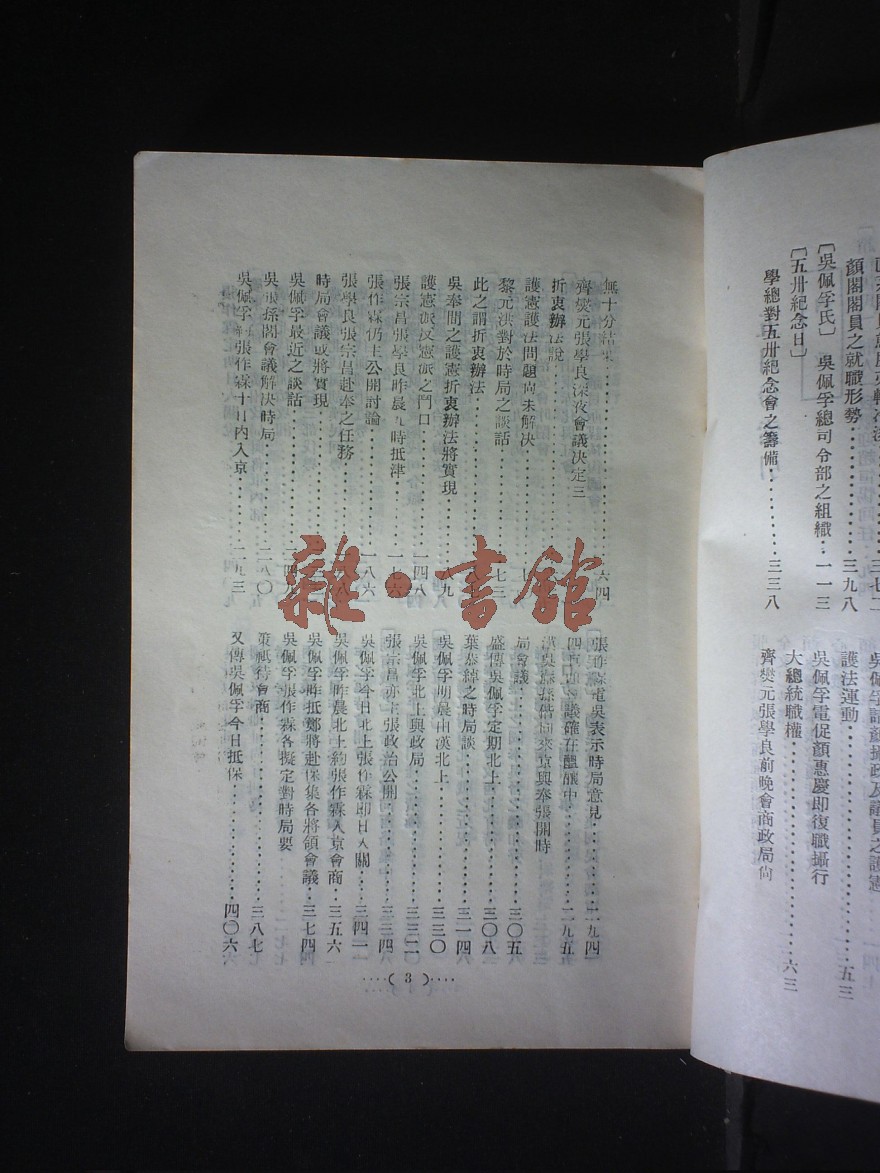 顏閣閣員之就職形勢………三九八
〔吳佩孚氏〕　吳佩孚總司令部之組織‥一一三
〔五卅紀念日〕
學總對五卅紀念會之籌備………三三八
護法運動………五三
吳佩孚電促顏惠慶即復職攝行
大總統職權………六三
齊燮元張學良前晚會商政局尚
無十分結果………六四
齊燮元張學良深夜會議決定三
折衷辦法說
護憲護法問題尚未解決
黎元洪對於時局之談話………七三
此之謂折衷辦法
吳奉間之護憲折衷辦法將實現
護憲派反憲派之鬥口………一四八
張宗昌張學良昨晨九時抵津………一七六
張作霖仍主公開討論………一八六
張學良張宗昌赴奉之任務
時局會議或將實現
吳佩孚最近之談話
吳張孫閻會議解決時局………二八〇
吳佩孚與張作霖十日內入京………二九三
張作霖電吳表示時局意見………二九四
局會議………三〇五
盛傳吳佩孚定期北上………三〇八
葉恭綽之時局談………三一四
吳佩孚明晨由漢北上………三三〇
吳佩孚北上與政局………三三二
張宗昌亦主張政治公開………三三四
吳佩孚今日北上張作霖即日入關………三四一
吳佩孚昨晨北上約張作霖入京會商………三五六
吳佩孚昨抵鄭將赴保集各將領會議………三七四
吳佩孚張作霖各擬定對時局要
策祇待會商………三八七
又傳吳佩孚今日抵保………四〇六
‥‥( 3 )‥‥
雜·書館